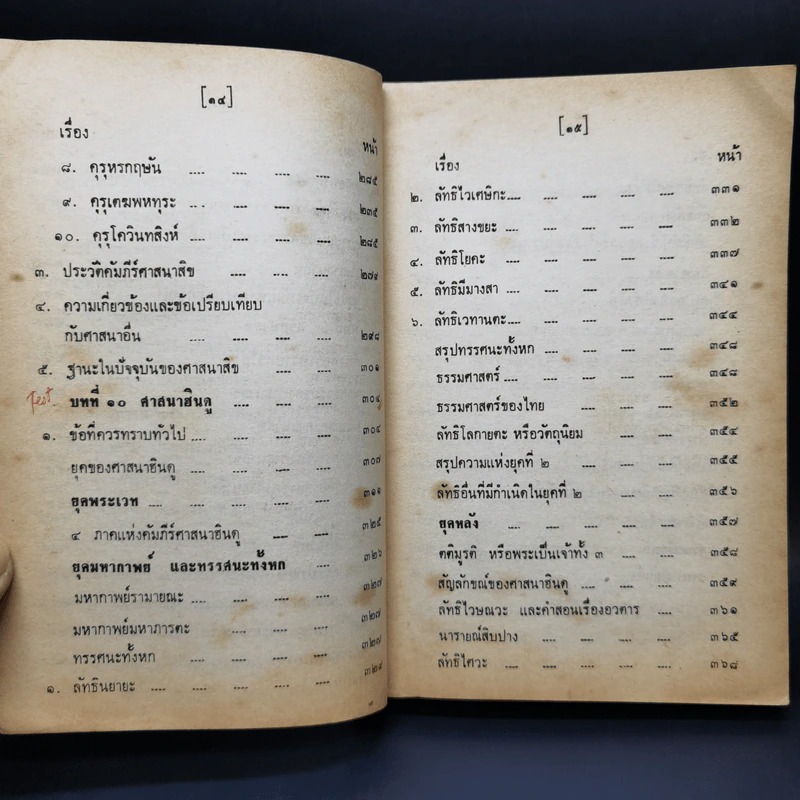 [๑๔]
เรื่อง หน้า
๘. คุรุหรกฤษัน .... .... .... .... ๒๘๕
๙. คุรุเตฆพหทุระ .... .... .... .... ๒๓๕
๑๐. คุรุโควินทสิงห์ .... .... .... .... ๒๘๕
๓. ประวัติคัมภีร์ศาสนาสิข .... .... .... ๒๗๙
๔. ความเกี่ยวข้องและข้อเปรียบเทียบ
กับศาสนาอื่น .... .... .... .... ๒๙๘
๕. ฐานะในปัจจุบันของศาสนาสิข .... .... ๓๐๑
Test. บทที่ ๑๐ ศาสนาฮินดู .... .... .... ๓๐๔
๑. ข้อที่ควรทราบทั่วไป .... .... .... .... ๓๐๔
ยุคของศาสนาฮินดู .... .... .... .... ๓๐๗
ยุคพระเวท .... .... .... .... .... ๓๑๑
๔ ภาคแห่งคัมภีร์ศาสนาฮินดู .... .... ๓๒๕
ยุคมหากาพย์ และทรรศนะทั้งหก .... .... ๓๒๖
มหากาพย์รามายณะ .... .... .... .... ๓๒๗
มหากาพย์มหาภารตะ .... .... .... ๓๒๗
ทรรศนะทั้งหก .... .... .... .... ๓๒๗
๑. ลัทธินยายะ .... .... .... .... .... ๓๒๙
[๑๕]
เรื่อง หน้า
๒. ลัทธิไวเศษิกะ .... .... .... .... ๓๓๑
๓. ลัทธิสางขยะ .... .... .... .... ๓๓๒
๔. ลัทธิโยคะ .... .... .... .... ๓๓๗
๕. ลัทธิมีมางสา .... .... .... .... ๓๔๑
๖. ลัทธิเวทานตะ .... .... .... .... ๓๔๔
สรุปทรรศนะทั้งหก .... .... .... ๓๔๘
ธรรมศาสตร์ .... .... .... .... ๓๔๘
ธรรมศาสตร์ของไทย .... .... .... ๓๕๒
ลัทธิโลกายตะ หรือวัตถุนิยม .... .... ๓๕๔
สรุปความแห่งยุคที่ ๒ .... .... .... ๓๕๕
ลัทธิอื่นที่มีกำเนิดในยุคที่ ๒ .... .... .... ๓๕๖
ยุคหลัง .... .... .... .... .... ๓๕๗
ตติมุรติ หรือพระเป็นเจ้าทั้ง ๓ .... .... ๓๕๘
สัญลักขณ์ของศาสนาฮินดู .... .... .... ๓๕๙
ลัทธิไวษณวะ และคำสอนเรื่องอวตาร .... ๓๖๑
นารายณ์สิบปาง .... .... .... .... ๓๖๕
ลัทธิไศวะ .... .... .... .... ๓๖๘